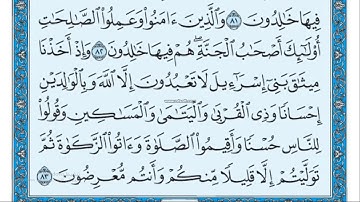 فِيهَا خَٰلِدُونَ ٨١ وَٱلَّذِينَ ءَامَنُوا۟ وَعَمِلُوا۟ ٱلصَّٰلِحَٰتِ
أُو۟لَٰٓئِكَ أَصْحَٰبُ ٱلْجَنَّةِ ۖ هُمْ فِيهَا خَٰلِدُونَ ٨٢ وَإِذْ أَخَذْنَا
مِيثَٰقَ بَنِىٓ إِسْرَٰٓءِيلَ لَا تَعْبُدُونَ إِلَّا ٱللَّهَ وَبِٱلْوَٰلِدَيْنِ
إِحْسَانًا وَذِى ٱلْقُرْبَىٰ وَٱلْيَتَٰمَىٰ وَٱلْمَسَٰكِينِ وَقُولُوا۟
لِلنَّاسِ حُسْنًا وَأَقِيمُوا۟ ٱلصَّلَوٰةَ وَءَاتُوا۟ ٱلزَّكَوٰةَ ثُمَّ
تَوَلَّيْتُمْ إِلَّا قَلِيلًا مِّنكُمْ وَأَنتُم مُّعْرِضُونَ ٨٣